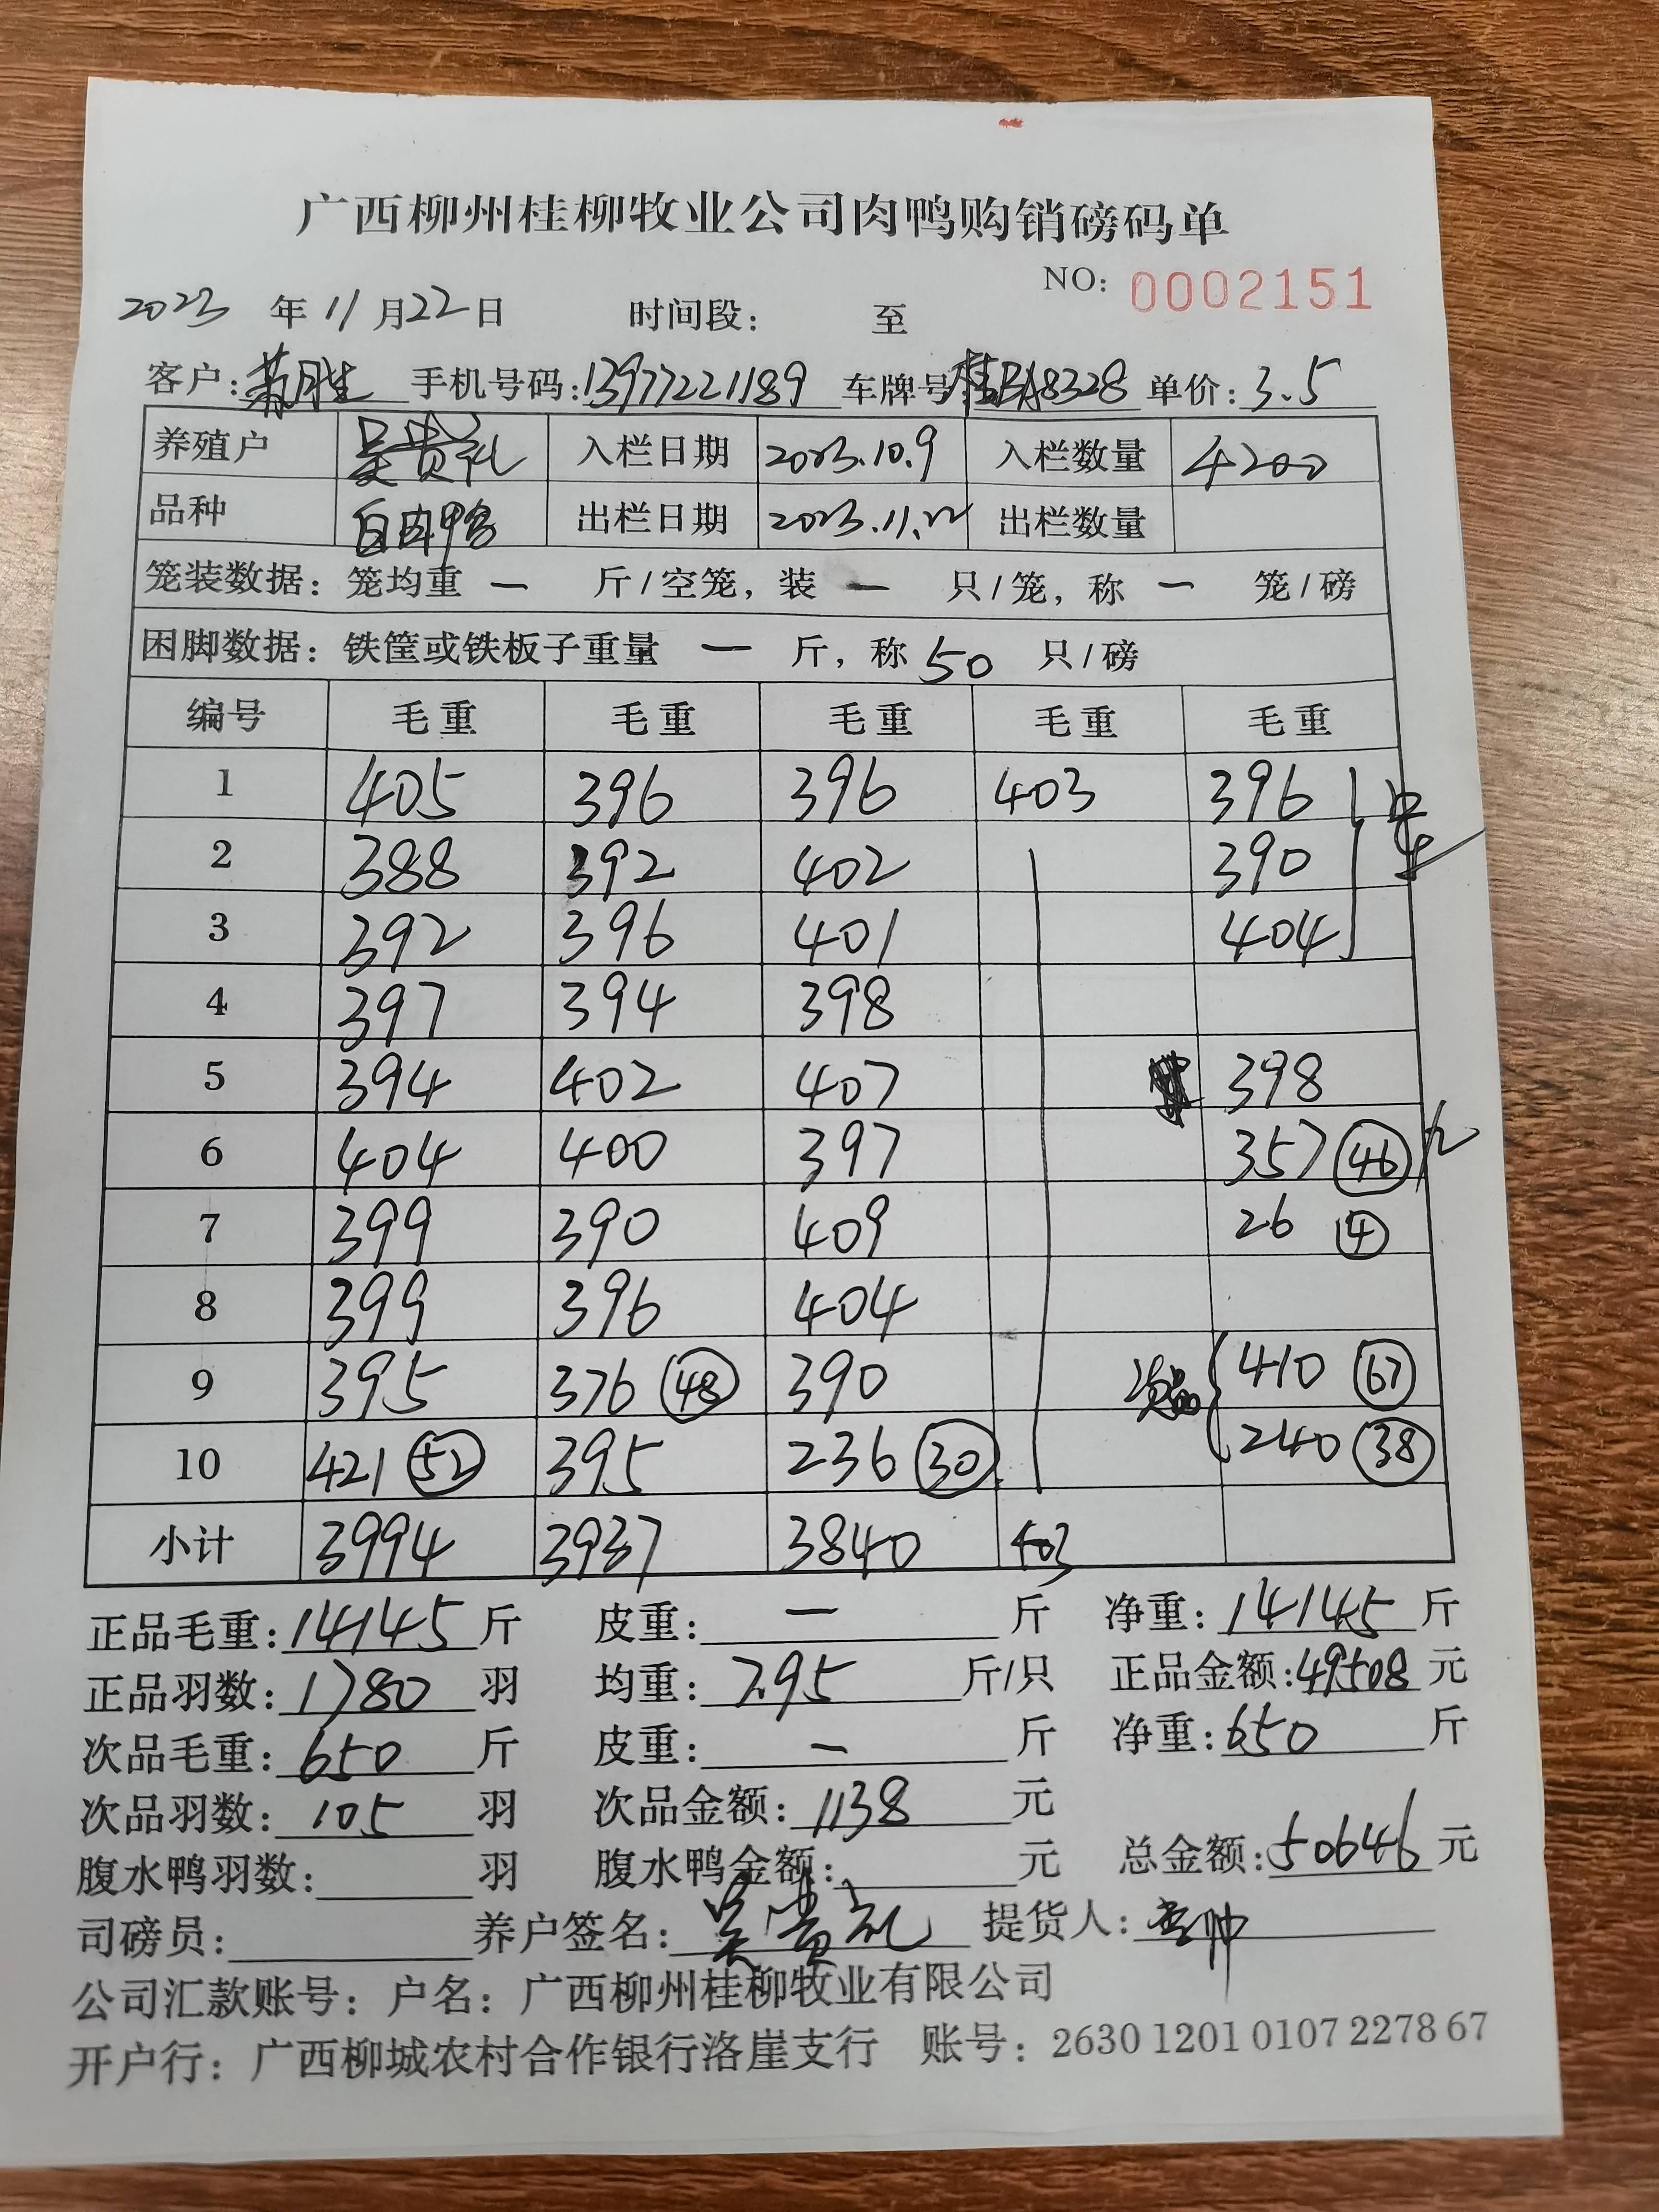 广西柳州桂柳牧业公司肉鸭购销磅码单
NO: 0002151
2023 年 11 月 22 日 时间段: 至
客户: 手机号码:13977221189 车牌号:桂BA8328 单价:3.5
养殖户 吴贵礼 入栏日期 2023.10.9 入栏数量 4200
品种 白肉鸭 出栏日期 2023.11.22 出栏数量
笼装数据: 笼均重 一 斤/空笼, 装 一 只/笼, 称 一 笼/磅
困脚数据: 铁筐或铁板子重量 一 斤, 称 50 只/磅
编号 毛重 毛重 毛重 毛重 毛重
1 405 396 396 403 396
2 388 392 402 390
3 392 396 401 404
4 397 394 398
5 394 402 407 398
6 404 400 397 357 46
7 399 390 409 26 4
8 399 396 404
9 395 376 48 390 次品 410 67
10 421 52 395 236 30 240 38
小计 3994 3937 3840 403
正品毛重:14145 斤 皮重: 一 斤 净重:14145 斤
正品羽数:1780 羽 均重: 7.95 斤/只 正品金额:49508 元
次品毛重:650 斤 皮重: 一 斤 净重:650 斤
次品羽数:105 羽 次品金额:1138 元
腹水鸭羽数: 羽 腹水鸭金额: 元 总金额:50646 元
司磅员: 养户签名: 吴贵礼 提货人:
公司汇款账号: 户名: 广西柳州桂柳牧业有限公司
开户行: 广西柳城农村合作银行洛崖支行 账号: 2630 1201 0107 2278 67